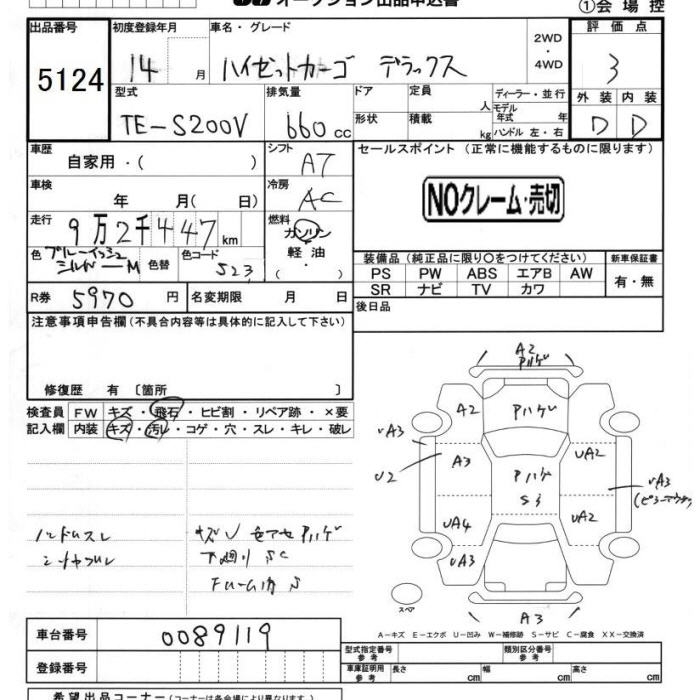 オークション出品申込書
①会場控
出品番号 初度登録年月 車名・グレード 評価点
5124 14 月 ハイゼットカーゴ デラックス 2WD・4WD 3
型式 排気量 ドア 定員 人 ディーラー・並行 外装 内装
TE-S200V 660 cc 形状 積載 kg モデル年式 年 ハンドル 左・右 D D
車歴 自家用・( ) シフト AT セールスポイント (正常に機能するものに限ります)
車検 年 月( 日) 冷房 AC NOクレーム・売切
走行 9万2千447km 燃料 ガソリン
軽油・( )
色 ブルーイッシュシルバーM 色替 色コード 523
装備品(純正品に限り○をつけてください) 新車保証書
PS PW ABS エアB AW 有・無
SR ナビ TV カワ
R券 5970 円 名変期限 月 日 後日品
注意事項申告欄(不具合内容等は具体的に記入して下さい)
修復歴 有 〔箇所 〕
検査員 FW キズ・飛石・ヒビ割・リペア跡・×要
記入欄 内装 キズ・汚レ・コゲ・穴・スレ・キレ・破レ
ハンドルスレ
シートヤブレ
キズU 色アセ Pハゲ
下廻りSC
A2
Pハゲ
A2 Pハゲ
UA3
A3
U2
UA2
Pハゲ
S3
UA3
UA4
UA2
UA3
A3
スペア
A-キズ E-エクボ U-凹み W-補修跡 S-サビ C-腐食 XX-交換済
車台番号 0089119
登録番号
型式指定番号 参考 類別区分番号 参考
車庫証明用 参考 長さ cm 幅 cm 高さ cm
希望出品コーナー(コーナーは各会場により異なります。)